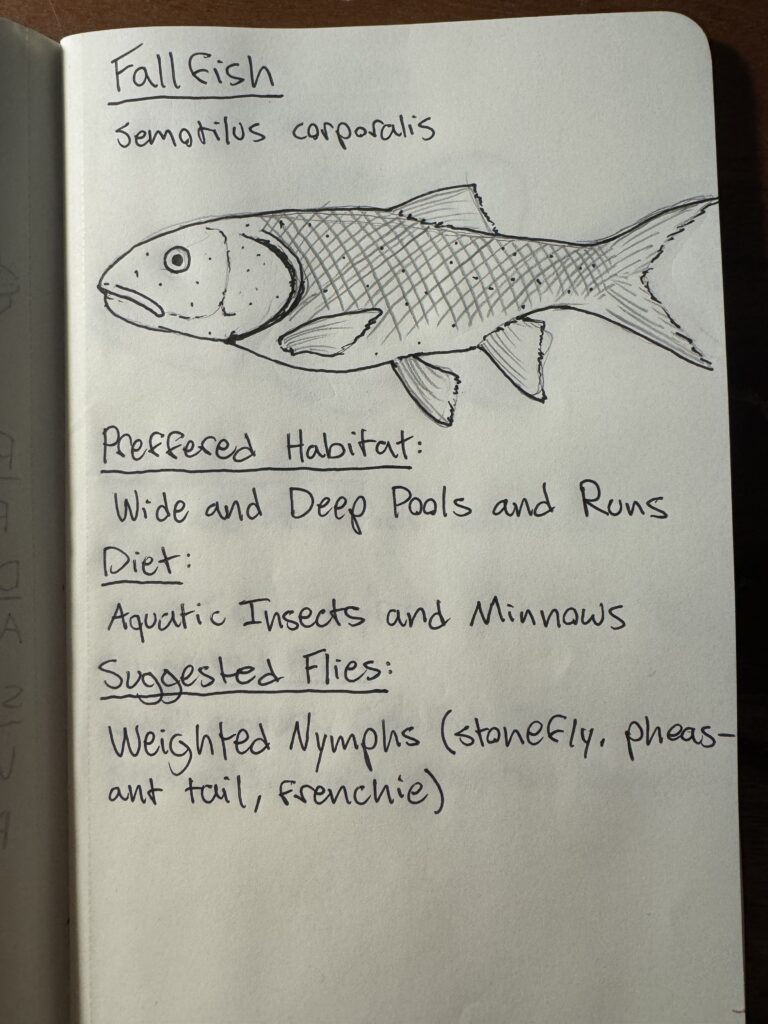 Fallfish
Semotilus corporalis
Preffered Habitat:
Wide and Deep Pools and Runs
Diet:
Aquatic Insects and Minnows
Suggested Flies:
Weighted Nymphs (stonefly, pheas-
ant tail, frenchie)